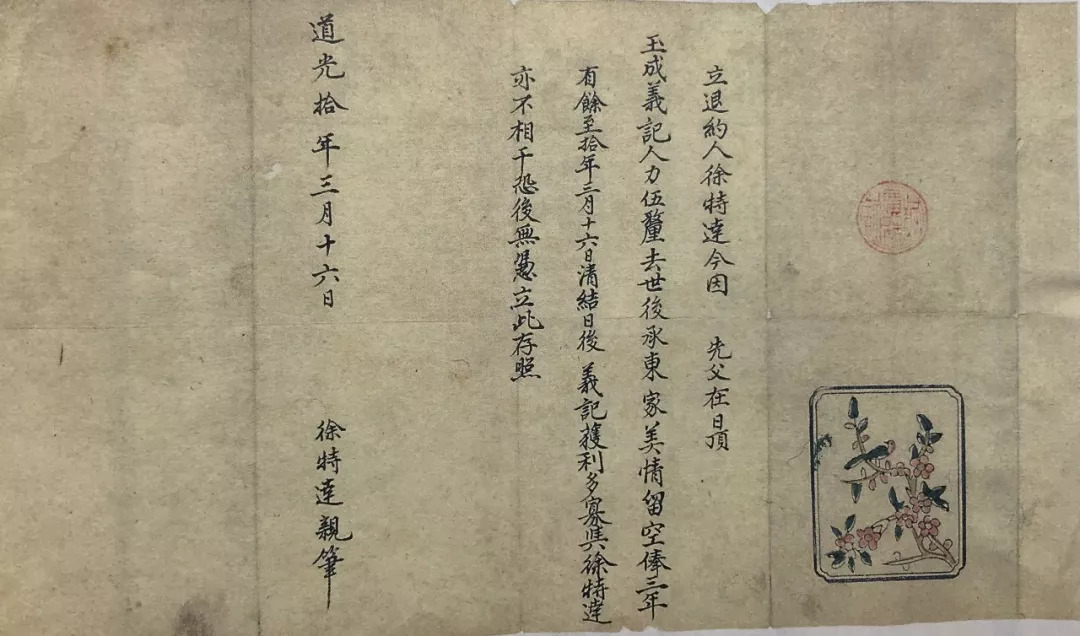 立退約人徐特達今因　先父在日頂
玉成義記人力伍釐去世後承東家美情留空俸三年
有餘至拾年三月十六日清結日後　義記獲利多寡與徐特達
亦不相干恐後無憑立此存照
道光拾年三月十六日　徐特達親筆